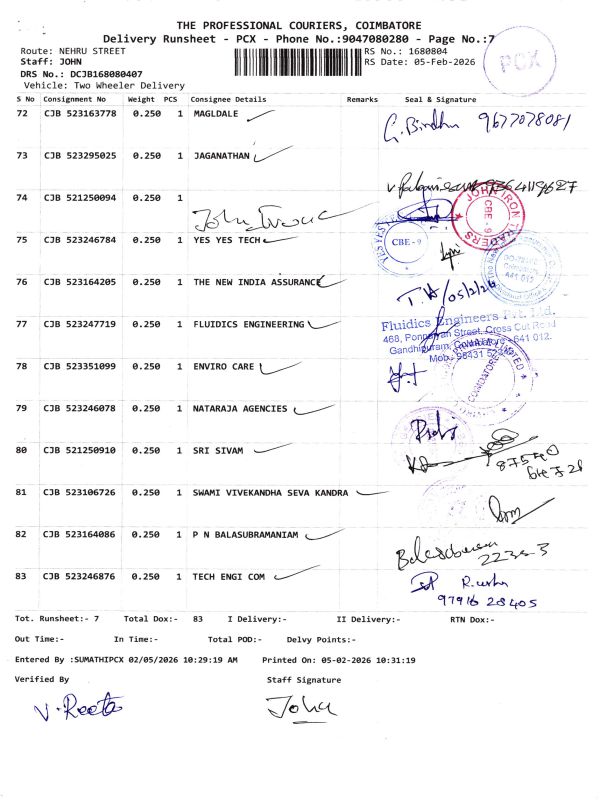 THE PROFESSIONAL COURIERS, COIMBATORE
Delivery Runsheet - PCX - Phone No.:9047080280 - Page No.:7
Route: NEHRU STREET
RS No.: 1680804
Staff: JOHN
RS Date: 05-Feb-2026
DRS No.: DCJB168080407
Vehicle: Two Wheeler Delivery
PCX
S No Consignment No Weight PCS Consignee Details Remarks Seal & Signature
72 CJB 523163778 0.250 1 MAGLDALE
G. Bindhu 9677078081
73 CJB 523295025 0.250 1 JAGANATHAN
74 CJB 521250094 0.250 1
JOHN IRON TRADERS
CBE - 9
75 CJB 523246784 0.250 1 YES YES TECH
CBE - 9
76 CJB 523164205 0.250 1 THE NEW INDIA ASSURANCE
05/2/26
77 CJB 523247719 0.250 1 FLUIDICS ENGINEERING
Fluidics Engineers Pvt. Ltd.
468, Ponnaiyan Street, Cross Cut Road
Gandhipuram, Coimbatore - 641 012.
78 CJB 523351099 0.250 1 ENVIRO CARE
COIMBATORE
79 CJB 523246078 0.250 1 NATARAJA AGENCIES
80 CJB 521250910 0.250 1 SRI SIVAM
81 CJB 523106726 0.250 1 SWAMI VIVEKANDHA SEVA KANDRA
82 CJB 523164086 0.250 1 P N BALASUBRAMANIAM
83 CJB 523246876 0.250 1 TECH ENGI COM
97916 28405
Tot. Runsheet:- 7 Total Dox:- 83 I Delivery:- II Delivery:- RTN Dox:-
Out Time:- In Time:- Total POD:- Delvy Points:-
Entered By :SUMATHIPCX 02/05/2026 10:29:19 AM Printed On: 05-02-2026 10:31:19
Verified By Staff Signature
V. Reeta John